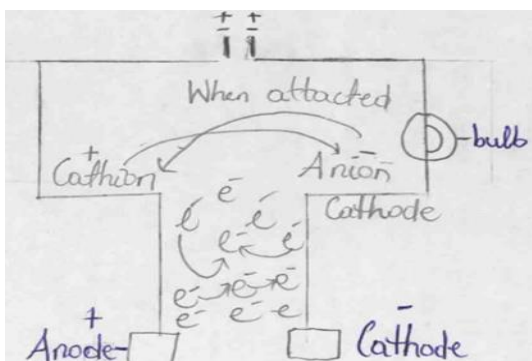 + +
- -
When attacted
+ -
Cathion Anion
bulb
Cathode
e⁻
e⁻ e⁻
e⁻ e⁻
e⁻ e⁻ e⁻
e⁻ e⁻ e
+ -
Anode Cathode